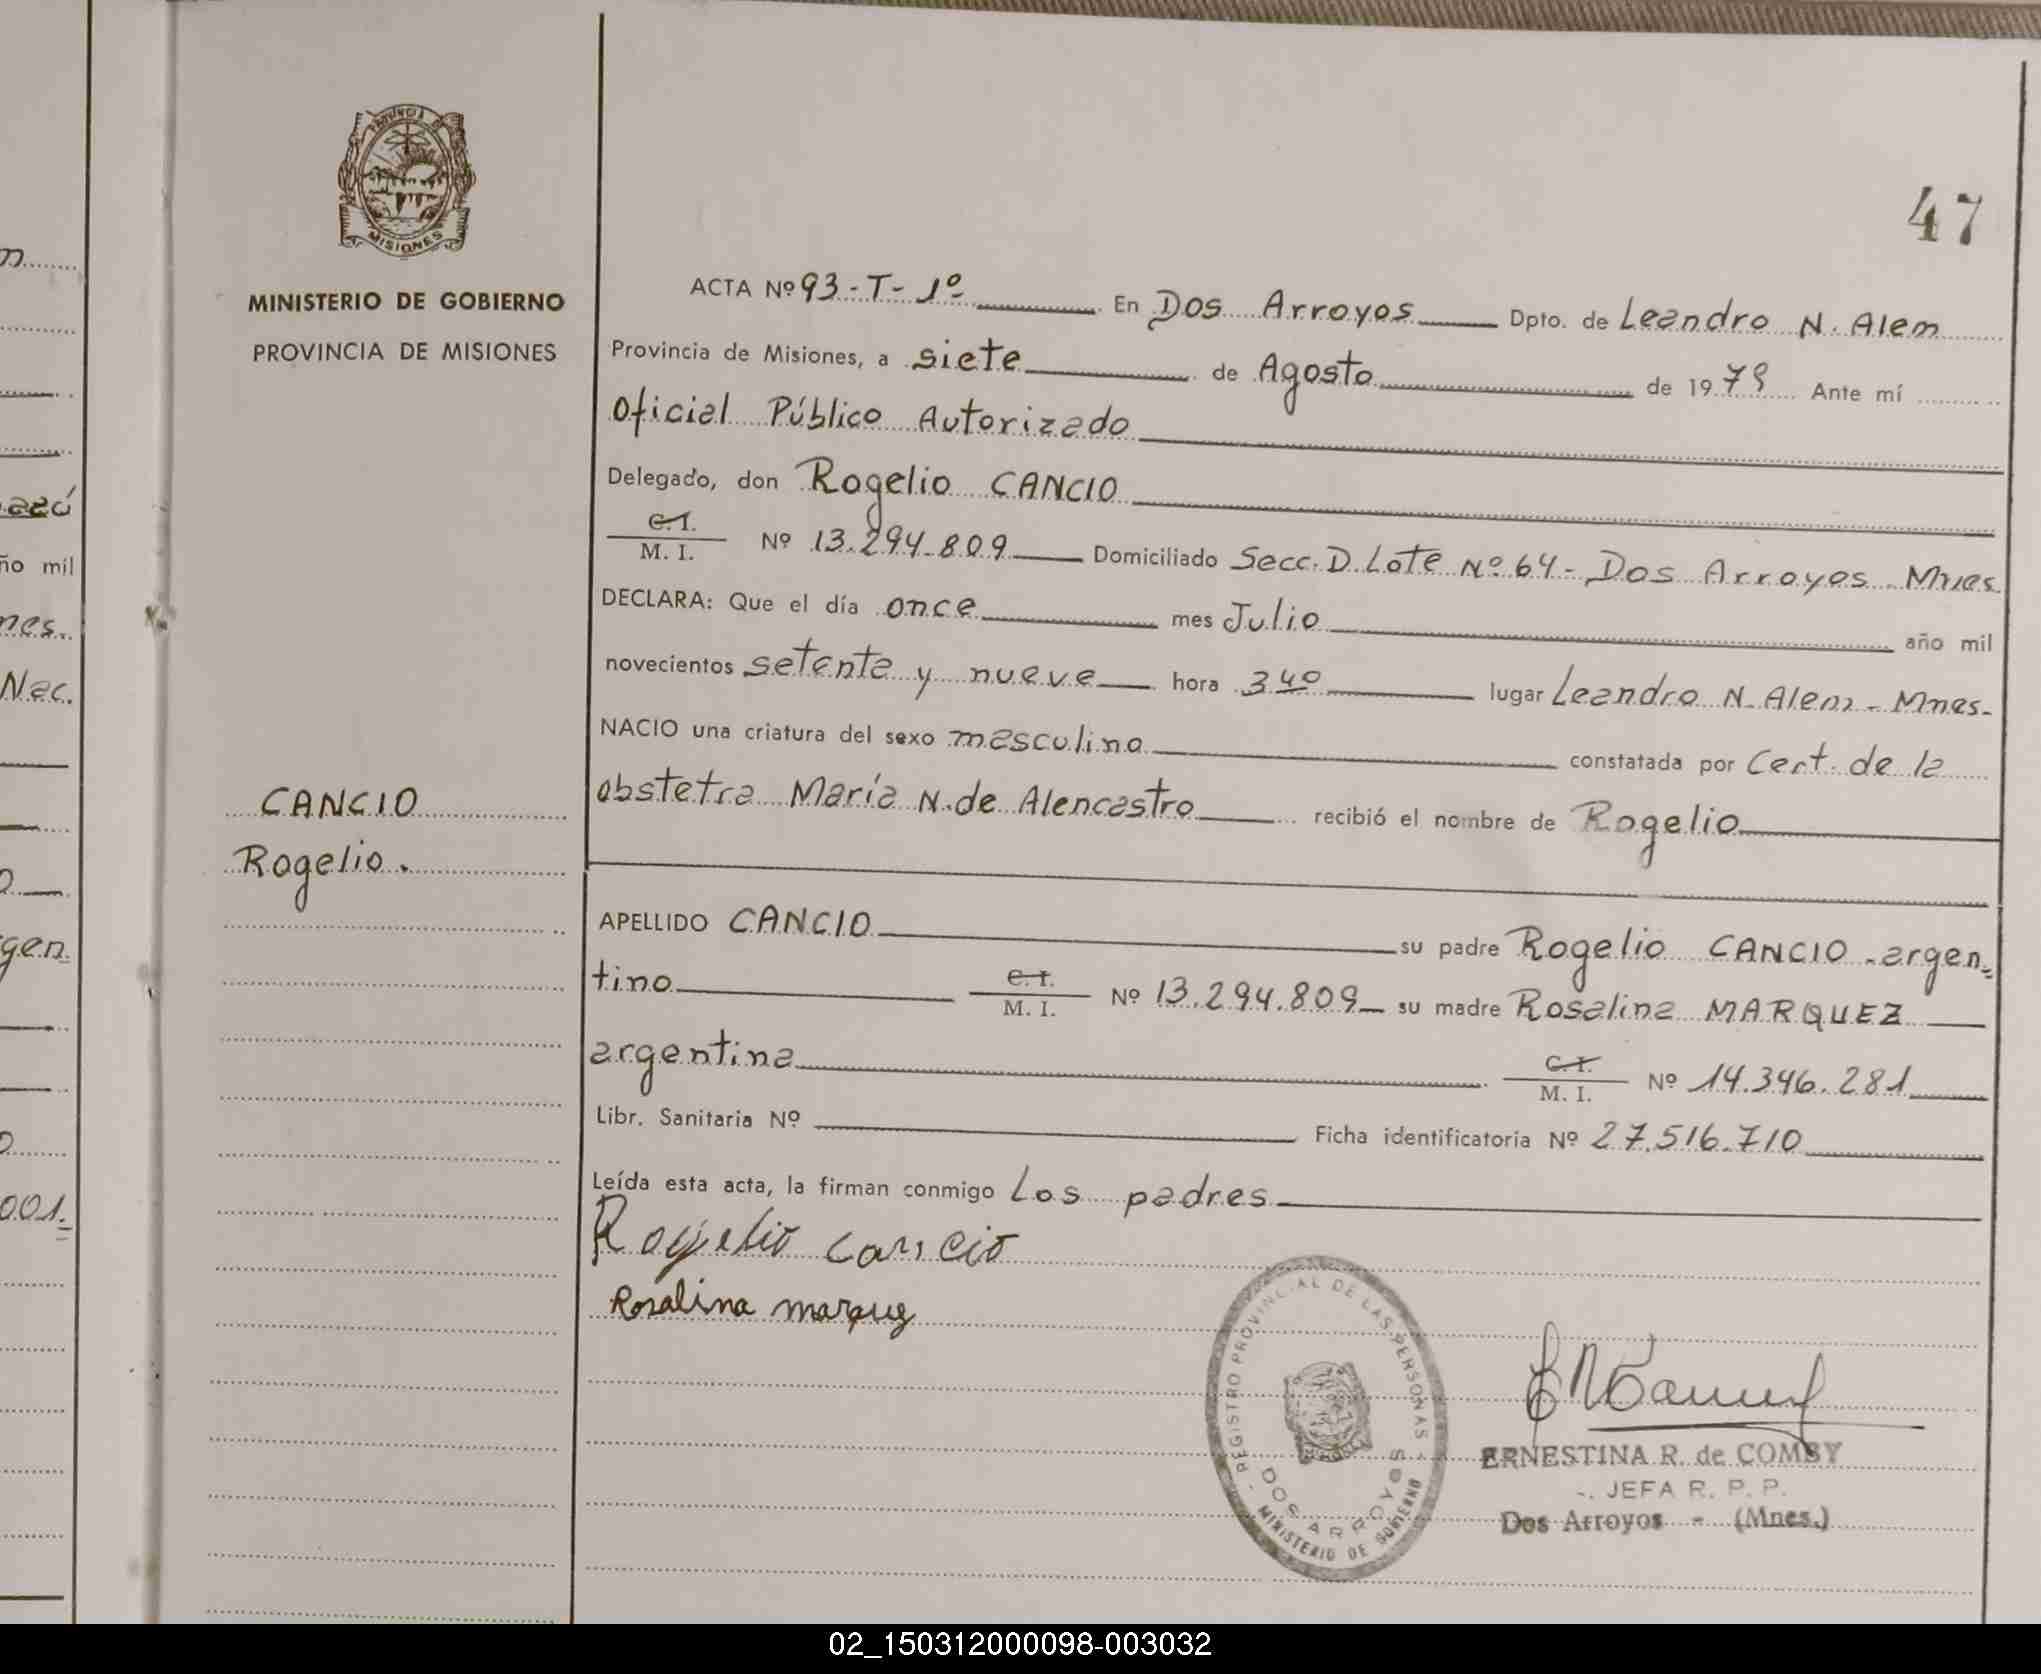 PROVINCIA DE
MISIONES
MINISTERIO DE GOBIERNO
PROVINCIA DE MISIONES
CANCIO
Rogelio.
47
ACTA Nº 93-T-1º En Dos Arroyos Dpto. de Leandro N. Alem
Provincia de Misiones, a siete de Agosto de 1979 Ante mí
Oficial Público Autorizado
Delegado, don Rogelio CANCIO
C.I.
M. I. Nº 13.294.809 Domiciliado Secc. D. Lote Nº 64 - Dos Arroyos - Mnes.
DECLARA: Que el día once mes Julio año mil
novecientos setenta y nueve hora 3 40 lugar Leandro N. Alem - Mnes-
NACIO una criatura del sexo masculino constatada por Cert. de la
obstetra María N. de Alencastro recibió el nombre de Rogelio
APELLIDO CANCIO su padre Rogelio CANCIO - argen=
tino C.I. M. I. Nº 13.294.809 su madre Rosalina MARQUEZ
argentina C.I. M. I. Nº 14.346.281
Libr. Sanitaria Nº Ficha identificatoria Nº 27.516.710
Leída esta acta, la firman conmigo Los padres
Rogelio Cancio
Rosalina marquez
REGISTRO PROVINCIAL DE LAS PERSONAS
DOS ARROYOS
MINISTERIO DE GOBIERNO
ERNESTINA R. de COMBY
-. JEFA R. P. P.
Dos Arroyos - (Mnes.)
n
azú
ño mil
nes.
Nac.
gen.
001.
02_150312000098-003032